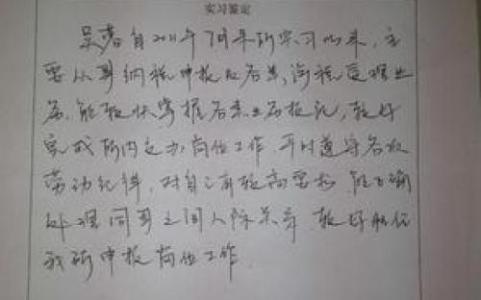 实习鉴定
吴蓉自2011年7月来所实习以来,主
要从事纳税申报及各类涉税受理业
务,能较快掌握各类业务技能,较好
完成所内交办岗位工作,平时遵守各项
劳动纪律,对自己有较高要求,能正确
处理同事之间人际关系,较好胜任
我所申报岗位工作。